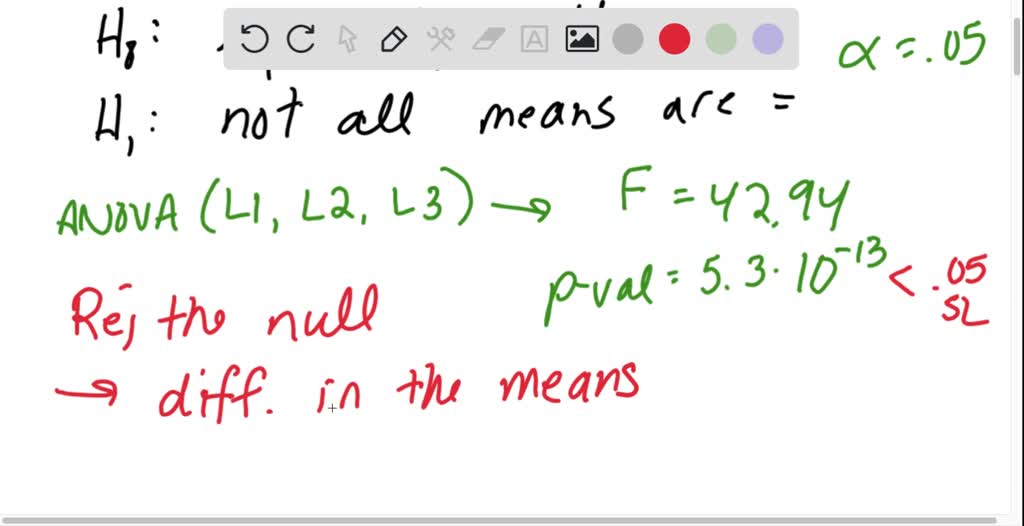 H₀:
α = .05
H₁: not all means are =
ANOVA (L1, L2, L3) → F = 42.94
p-val = 5.3 · 10⁻¹³ < .05
SL
Rej the null
→ diff. in the means